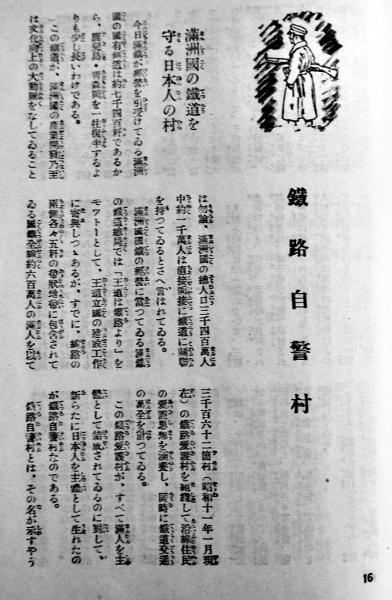 鐵路自警村
滿洲國の鐵道を
守る日本人の村
今日滿鐵が經營を引受けてゐる滿洲
國の國有鐵道は約七千四百粁であるか
ら、鹿兒島・青森間を一往復半するよ
りも少し長いわけである。
この鐵道が、滿洲國の產業開發乃至
は文化向上の大動脈をなしてゐること
は勿論、滿洲國の總人口三千四百萬人
中約一千萬人は直接間接に鐵道に關聯
を持つてゐるとさへ言はれてゐる。
滿洲國國鐵の經營に當つてゐる滿鐵
の鐵道總局では「王道は鐵路より」を
モツトーとして、王道立國の建設工作
に寄與しつゝあるが、すでに、線路の
兩側各々五粁の帶狀地帶に包含されて
ゐる國鐵全線約六百萬人の滿人を以て
三千百六十二箇村（昭和十一年一月現
在）の鐵路愛護村を組織して沿線住民
の愛護思想を涵養し、同時に鐵道交通
の萬全を計つてゐる。
この鐵路愛護村が、すべて滿人を主
體として結成されてゐるのに對して、
新らたに日本人を主體として生れたの
が鐵路自警村なのである。
鐵路自警村とは、その名が示すやう
16